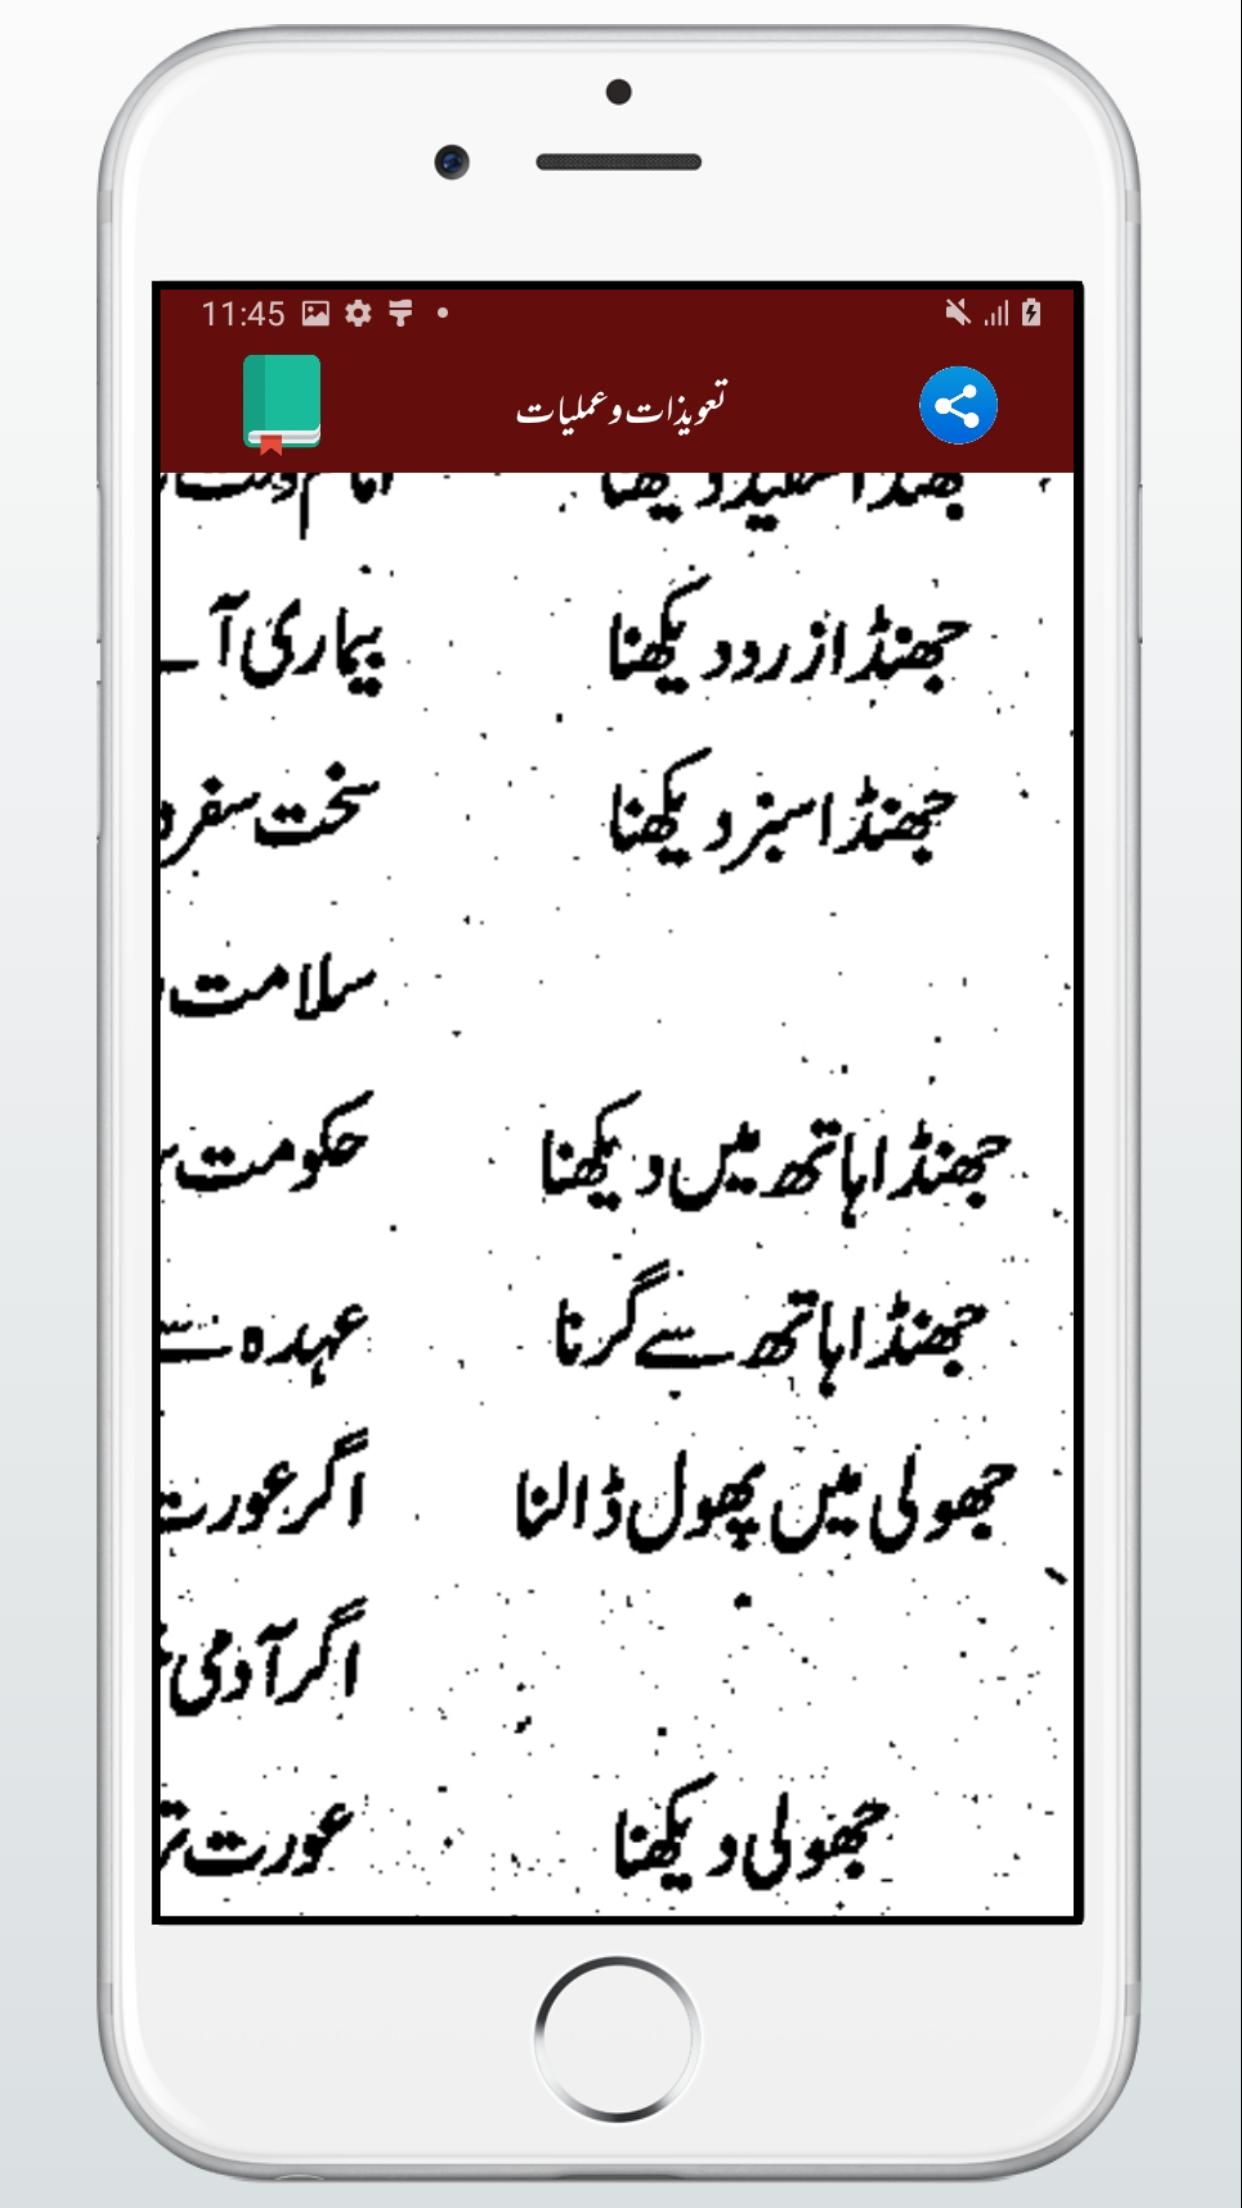 11:45
تعویذات و عملیات
جھنڈا سفید دیکھنا
جھنڈا زرد دیکھنا بیماری آئے
جھنڈا سبز دیکھنا سخت سفر
سلامت
جھنڈا ہاتھ میں دیکھنا حکومت
جھنڈا ہاتھ سے گرنا عہدہ سے
جھولی میں پھول ڈالنا اگر عورت
اگر آدمی
جھولی دیکھنا عورت